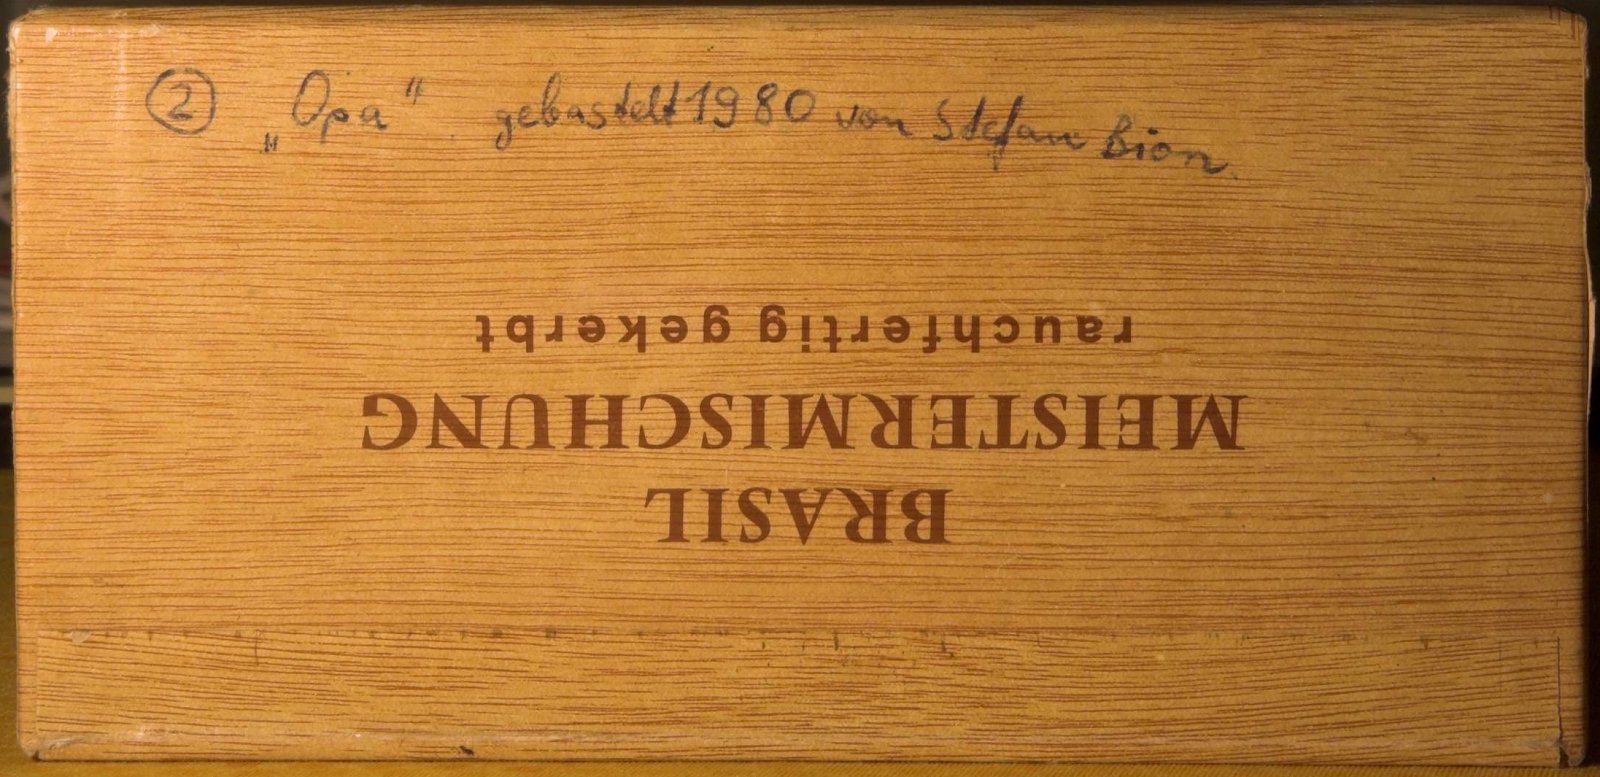 2 „Opa" gebastelt 1980 von Stefan Bion
BRASIL
MEISTERMISCHUNG
rauchfertig gekerbt